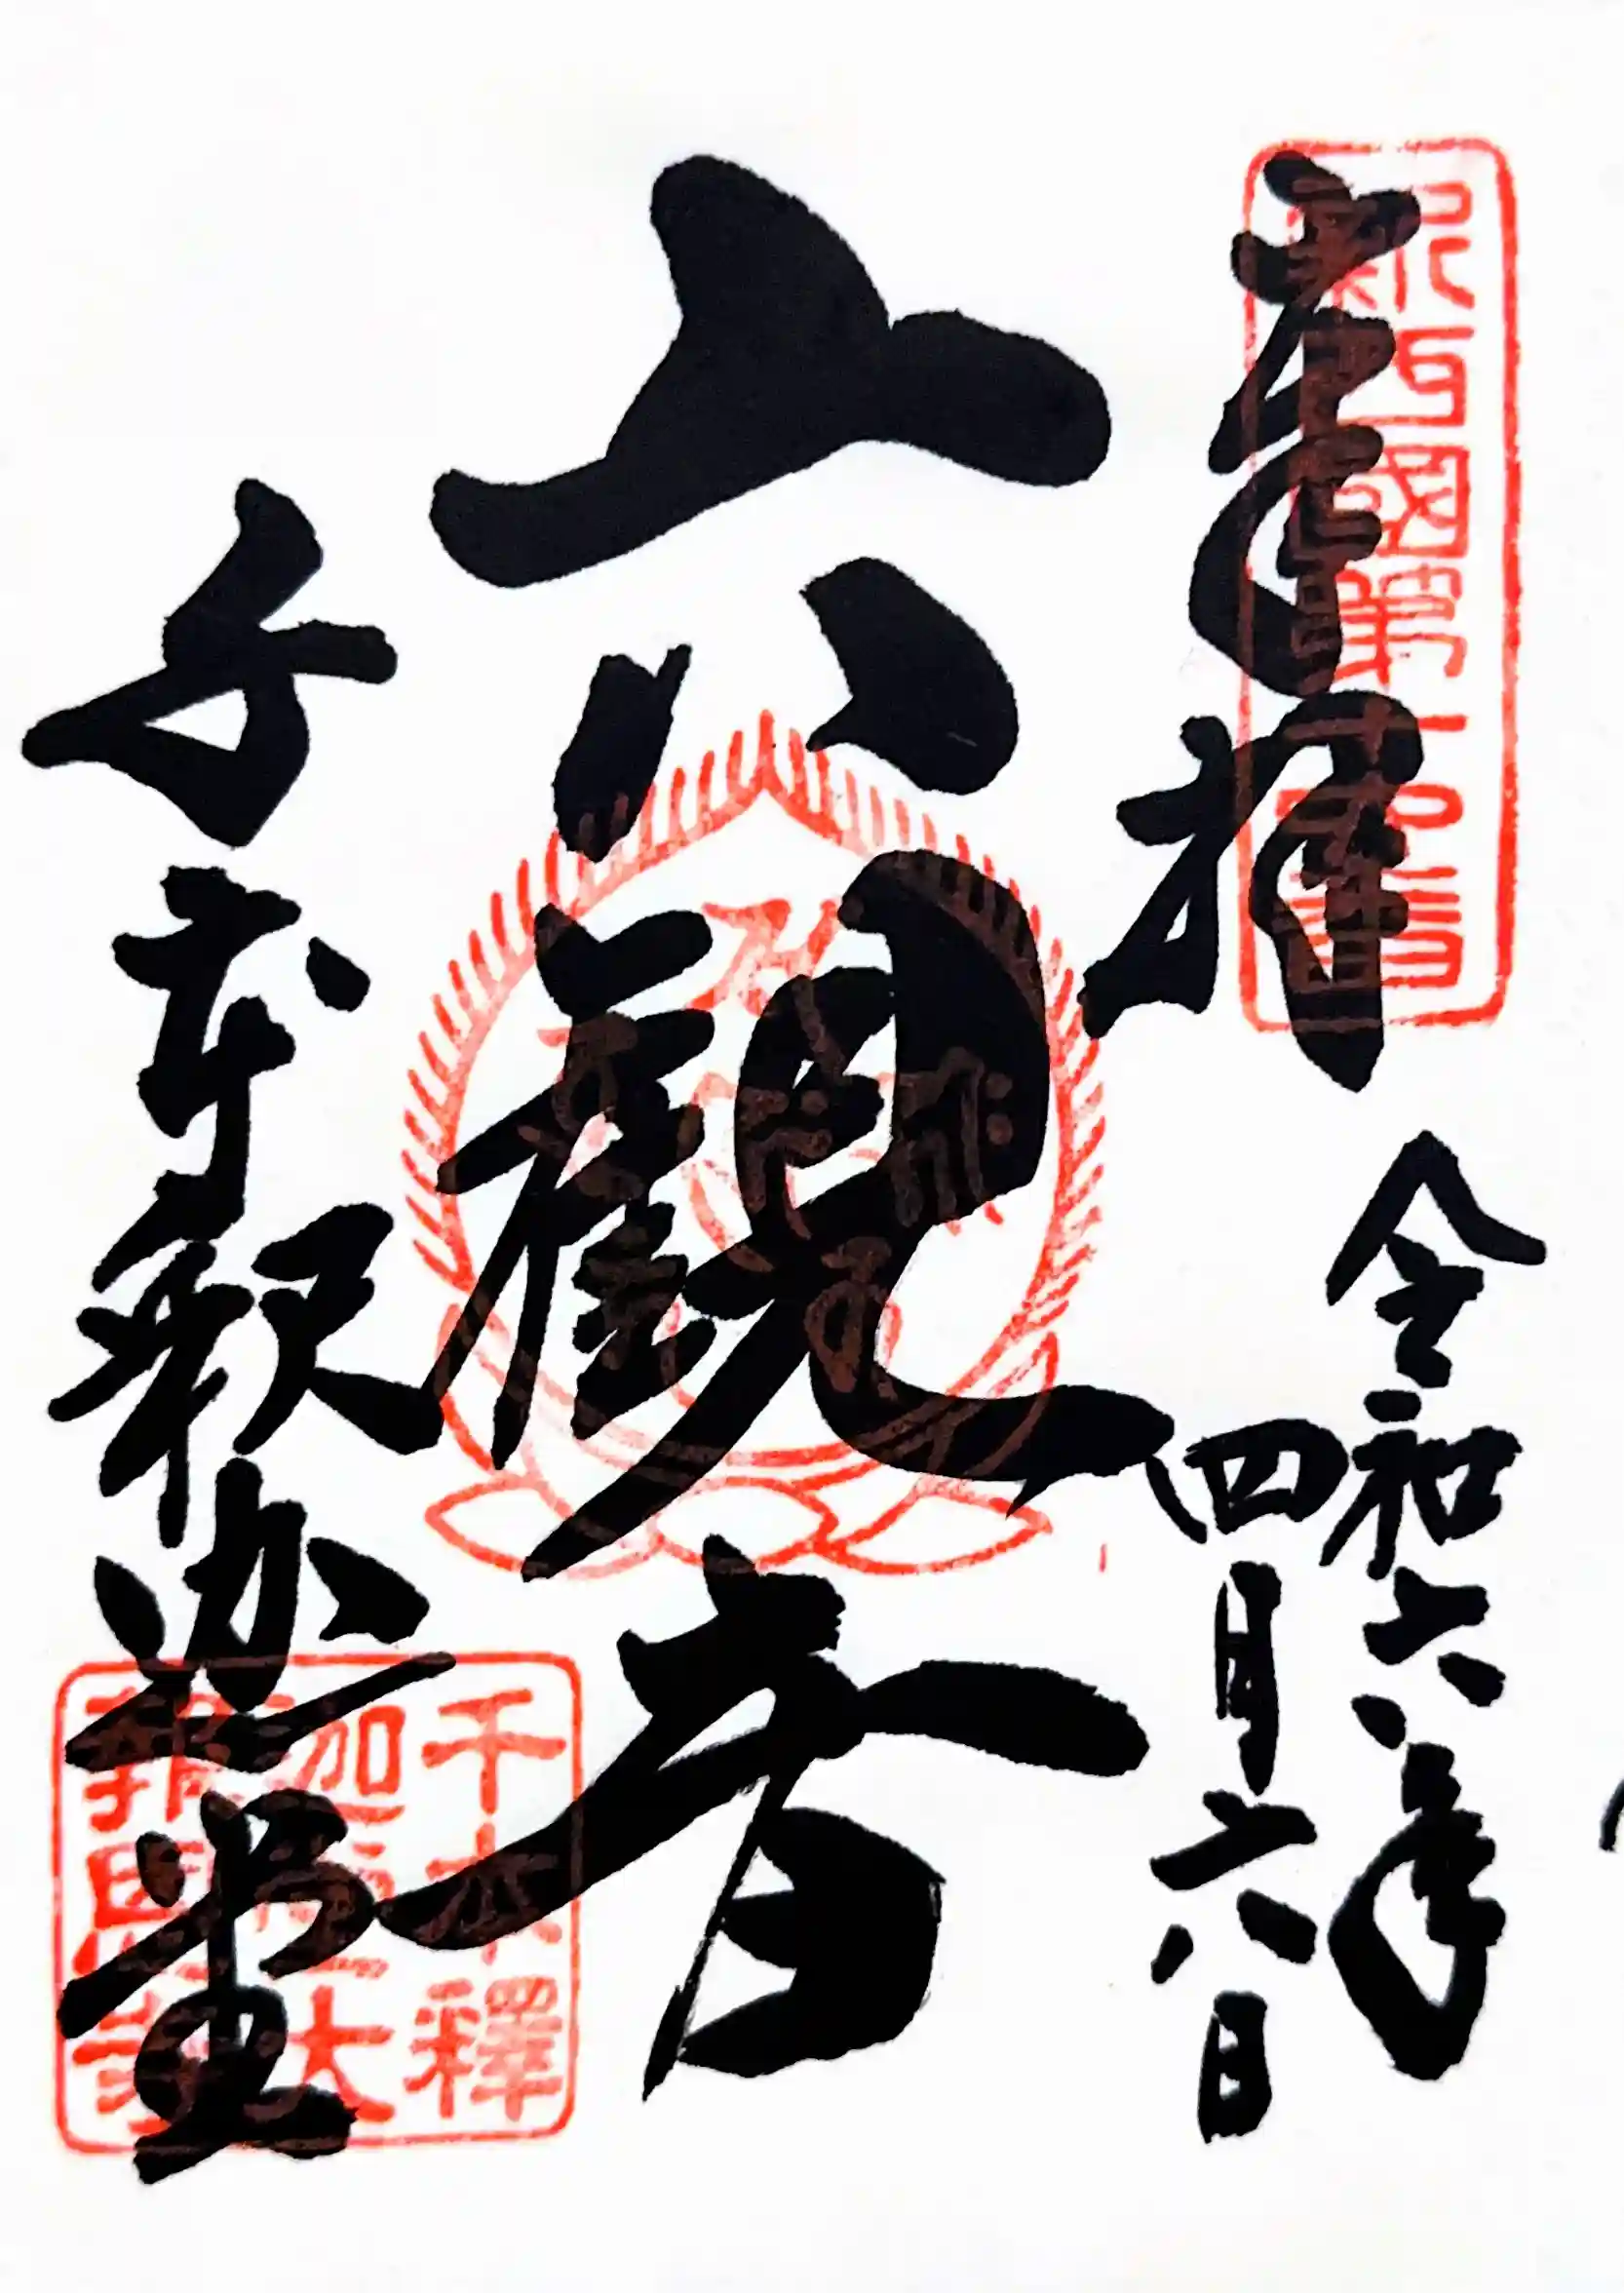 奉拝
新西國第十六番
令和六年
四月六日
六観音
千本釈迦堂
千本釋
迦堂大
報恩寺